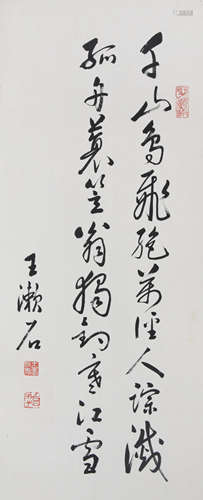 千山鸟飛絶萬徑人踪滅
孤舟蓑笠翁獨釣寒江雪
王漱石